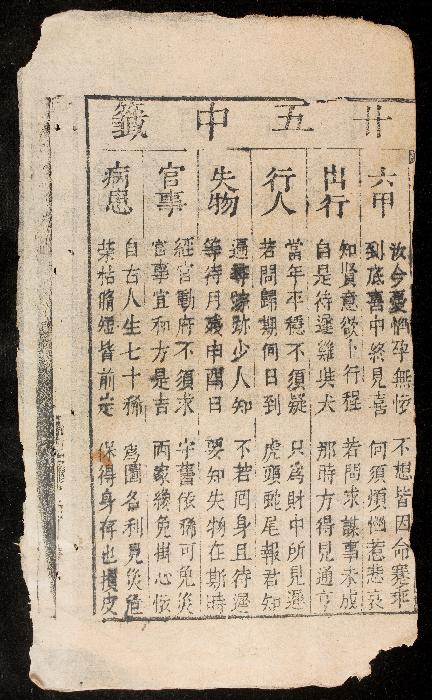 廿五中籤
六甲
汝今憂悶孕無 不想皆因命蹇乖
到底書中終見喜 何須煩惱惹悲哀
出行
知賢意欲卜行程 若問求謀事未成
自是待遲雞與犬 那時方得見通亨
行人
當年平穩不須疑 只為財中所見遲
若問歸期何日到 虎頭蛇尾報君知
失物
遍尋踪跡少人知 不若回身且待遲
等待月殘申酉日 要知失物在斯時
官事
經官動府不須求 守舊依稀可免災
官事宜和方是吉 兩家緩免掛心
病患
自古人生七十稀 為圖名利見災危
榮枯脩短皆前定 保得身存也損皮